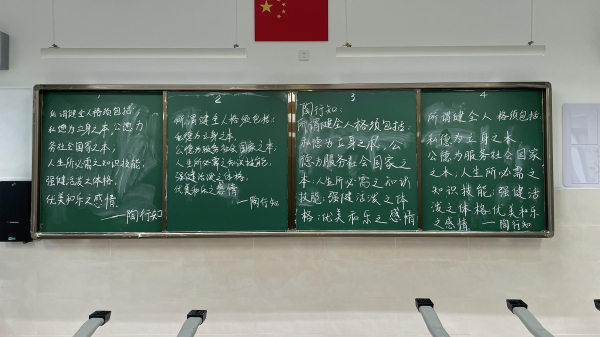 1
所谓健全人格须包括:
私德为立身之本,公德为
务社会国家之本,
人生所必需之知识技能,
强健活泼之体格,
优美和乐之感情
——陶行知
2
所谓健全人格须包括:
私德为立身之本,
公德为服务社会国家之本,
人生所必需之知识技能,
强健活泼之体格,
优美和乐之感情
——陶行知
3
陶行知:
所谓健全人格须包括:
私德为立身之本,公
德为服务社会国家之
本;人生所必需之知识
技能;强健活泼之体
格;优美和乐之感情
4
所谓健全人格须包括:
私德为立身之本,
公德为服务社会国家
之本;人生所必需之
知识技能;强健活
泼之体格;优美和乐
之感情 ——陶行知